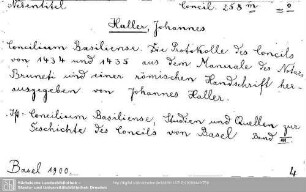 Nebentitel Concil. 258 m o
Haller, Johannes
Concilium Basiliense. Die Protokolle des Concils
von 1434 und 1435 aus dem Manuale des Notars
Bruneti und einer römischen Handschrift her-
ausgegeben von Johannes Haller.
Concilium Basiliense, Studien und Quellen zur
Geschichte des Concils von Basel Band III.
Basel 1900.